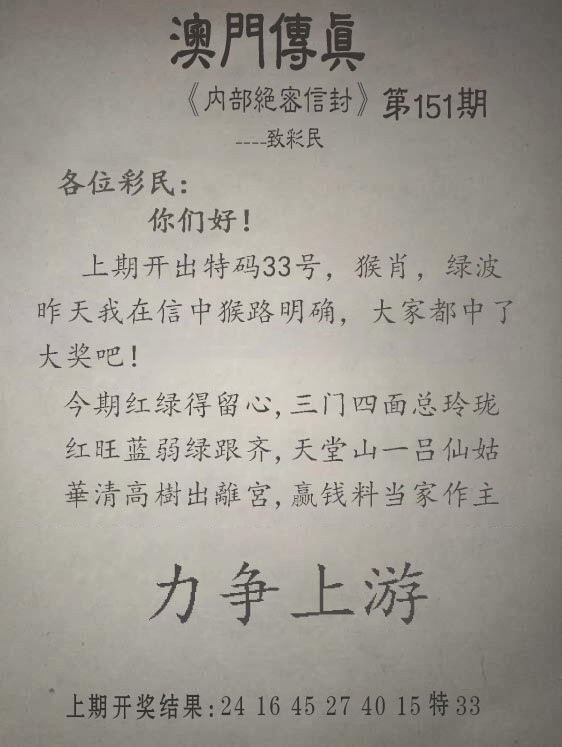 澳門傳真
《内部絕密信封》第151期
----致彩民
各位彩民:
你们好!
上期开出特码33号，猴肖，绿波
昨天我在信中猴路明确，大家都中了
大奖吧!
今期红绿得留心,三门四面总玲珑
红旺蓝弱绿跟齐,天堂山一吕仙姑
華清高樹出離宮,赢钱料当家作主
力争上游
上期开奖结果:24 16 45 27 40 15 特 33